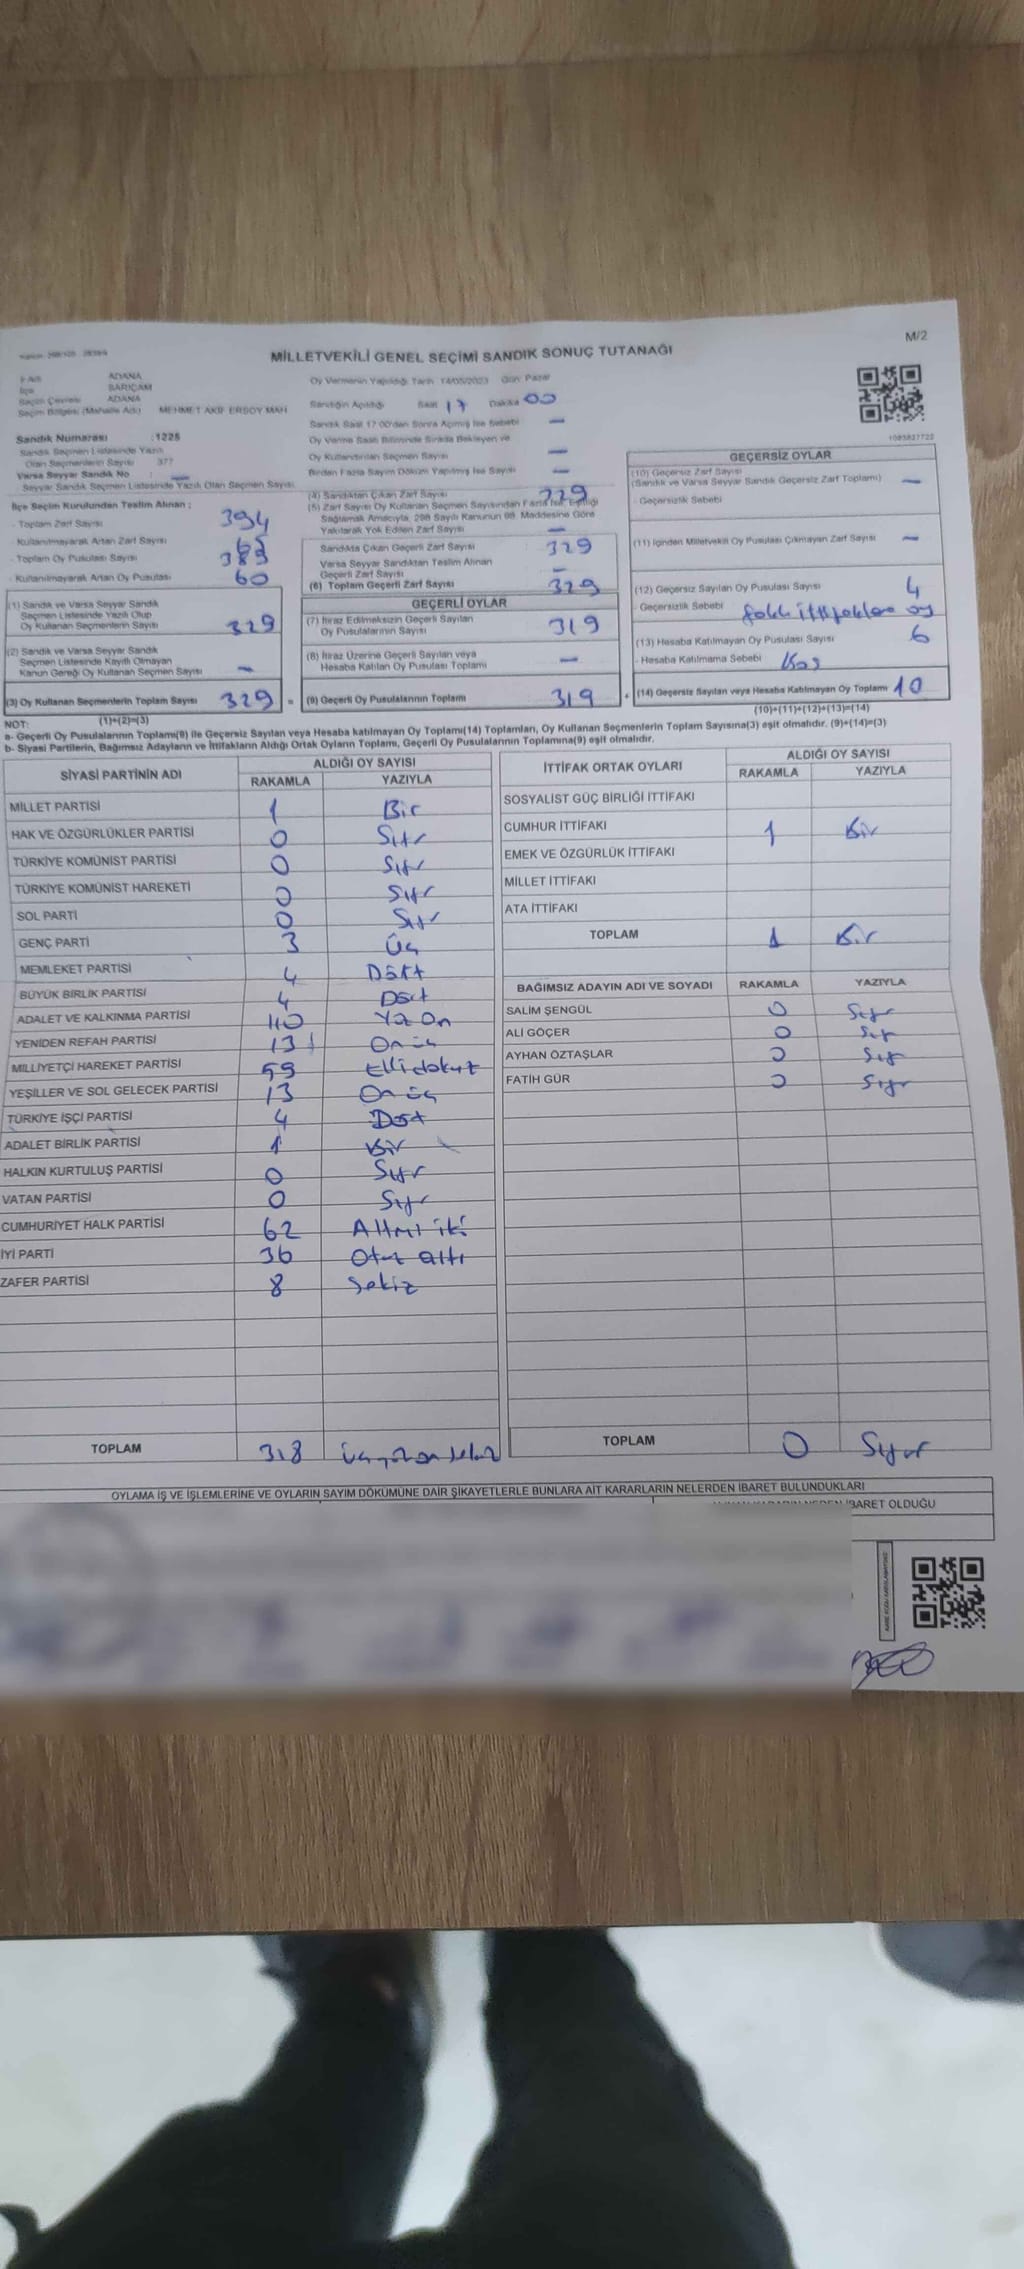 M/2
MİLLETVEKİLİ GENEL SEÇİMİ SANDIK SONUÇ TUTANAĞI
İli Adı ADANA
İlçe SARIÇAM
Seçim Çevresi ADANA
Seçim Bölgesi (Mahalle Adı) MEHMET AKİF ERSOY MAH
Sandık Numarası :1225
Sandık Seçmen Listesinde Yazılı
Olan Seçmenlerin Sayısı 377
Varsa Seyyar Sandık No : —
Seyyar Sandık Seçmen Listesinde Yazılı Olan Seçmen Sayısı
Oy Vermenin Yapıldığı Tarih 14/05/2023 Gün: Pazar
Sandığın Açıldığı Saat 17 Dakika 00
Sandık Saat 17.00'den Sonra Açılmış İse Sebebi —
Oy Verme Saati Bitiminde Sırada Bekleyen ve
Oy Kullandırılan Seçmen Sayısı —
Birden Fazla Sayım Döküm Yapılmış İse Sayısı —
1093827722
İlçe Seçim Kurulundan Teslim Alınan ;
- Toplam Zarf Sayısı 394
- Kullanılmayarak Artan Zarf Sayısı
- Toplam Oy Pusulası Sayısı 389
- Kullanılmayarak Artan Oy Pusulası 60
(1) Sandık ve Varsa Seyyar Sandık
Seçmen Listesinde Yazılı Olup
Oy Kullanan Seçmenlerin Sayısı 329
(2) Sandık ve Varsa Seyyar Sandık
Seçmen Listesinde Kayıtlı Olmayan
Kanun Gereği Oy Kullanan Seçmen Sayısı —
(3) Oy Kullanan Seçmenlerin Toplam Sayısı 329 =
(1)+(2)=(3)
(4) Sandıktan Çıkan Zarf Sayısı 329
(5) Zarf Sayısı Oy Kullanan Seçmen Sayısından Fazla İse, Eşitliği
Sağlamak Amacıyla, 298 Sayılı Kanunun 98. Maddesine Göre
Yakılarak Yok Edilen Zarf Sayısı —
Sandıkta Çıkan Geçerli Zarf Sayısı 329
Varsa Seyyar Sandıktan Teslim Alınan
Geçerli Zarf Sayısı —
(6) Toplam Geçerli Zarf Sayısı 329
GEÇERLİ OYLAR
(7) İtiraz Edilmeksizin Geçerli Sayılan
Oy Pusulalarının Sayısı 319
(8) İtiraz Üzerine Geçerli Sayılan veya
Hesaba Katılan Oy Pusulası Toplamı —
(9) Geçerli Oy Pusulalarının Toplamı 319 +
GEÇERSİZ OYLAR
(10) Geçersiz Zarf Sayısı
(Sandık ve Varsa Seyyar Sandık Geçersiz Zarf Toplamı) —
- Geçersizlik Sebebi
(11) İçinden Milletvekili Oy Pusulası Çıkmayan Zarf Sayısı —
(12) Geçersiz Sayılan Oy Pusulası Sayısı 4
- Geçersizlik Sebebi oy
(13) Hesaba Katılmayan Oy Pusulası Sayısı 6
- Hesaba Katılmama Sebebi
(14) Geçersiz Sayılan veya Hesaba Katılmayan Oy Toplamı 10
(10)+(11)+(12)+(13)=(14)
NOT:
a- Geçerli Oy Pusulalarının Toplamı(9) ile Geçersiz Sayılan veya Hesaba katılmayan Oy Toplamı(14) Toplamları, Oy Kullanan Seçmenlerin Toplam Sayısına(3) eşit olmalıdır. (9)+(14)=(3)
b- Siyasi Partilerin, Bağımsız Adayların ve İttifakların Aldığı Ortak Oyların Toplamı, Geçerli Oy Pusulalarının Toplamına(9) eşit olmalıdır.
SİYASİ PARTİNİN ADI ALDIĞI OY SAYISI
RAKAMLA YAZIYLA
MİLLET PARTİSİ 1 Bir
HAK VE ÖZGÜRLÜKLER PARTİSİ 0 Sıfır
TÜRKİYE KOMÜNİST PARTİSİ 0 Sıfır
TÜRKİYE KOMÜNİST HAREKETİ 0 Sıfır
SOL PARTİ 0 Sıfır
GENÇ PARTİ 3 Üç
MEMLEKET PARTİSİ 4 Dört
BÜYÜK BİRLİK PARTİSİ 4 Dört
ADALET VE KALKINMA PARTİSİ 110 Yüz On
YENİDEN REFAH PARTİSİ 13 On üç
MİLLİYETÇİ HAREKET PARTİSİ 59 Elli dokuz
YEŞİLLER VE SOL GELECEK PARTİSİ 13 On üç
TÜRKİYE İŞÇİ PARTİSİ 4 Dört
ADALET BİRLİK PARTİSİ 1 Bir
HALKIN KURTULUŞ PARTİSİ 0 Sıfır
VATAN PARTİSİ 0 Sıfır
CUMHURİYET HALK PARTİSİ 62 Altmış iki
İYİ PARTİ 36 Otuz altı
ZAFER PARTİSİ 8 Sekiz
TOPLAM 318 Üçyüzon sekiz
İTTİFAK ORTAK OYLARI ALDIĞI OY SAYISI
RAKAMLA YAZIYLA
SOSYALİST GÜÇ BİRLİĞİ İTTİFAKI
CUMHUR İTTİFAKI 1 Bir
EMEK VE ÖZGÜRLÜK İTTİFAKI
MİLLET İTTİFAKI
ATA İTTİFAKI
TOPLAM 1 Bir
BAĞIMSIZ ADAYIN ADI VE SOYADI RAKAMLA YAZIYLA
SALİM ŞENGÜL 0 Sıfır
ALİ GÖÇER 0 Sıfır
AYHAN ÖZTAŞLAR 0 Sıfır
FATİH GÜR 0 Sıfır
TOPLAM 0 Sıfır
OYLAMA İŞ VE İŞLEMLERİNE VE OYLARIN SAYIM DÖKÜMÜNE DAİR ŞİKAYETLERLE BUNLARA AİT KARARLARIN NELERDEN İBARET BULUNDUKLARI
İBARET OLDUĞU